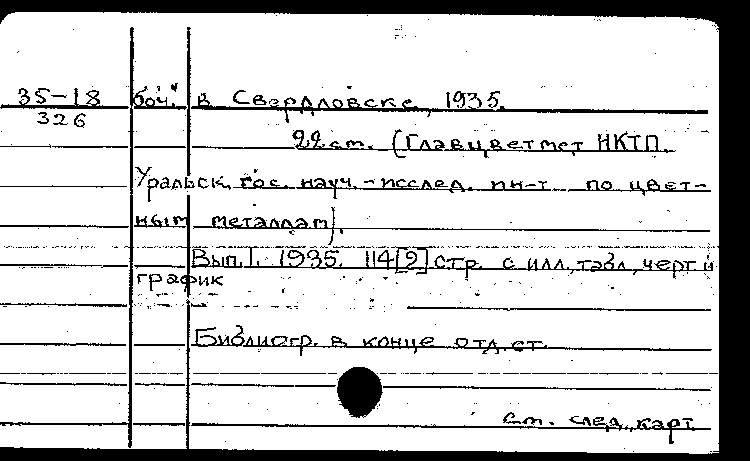 35-18 боч." в Свердловске, 1935.
326
22 см. (Главцветмет НКТП.
Уральск. гос. науч.-исслед. ин-т по цвет-
ным металлам).
Вып. I. 1935. 114[2] стр. с илл., табл., черт. и
график
Библиогр. в конце отд. ст.
См. след. карт.